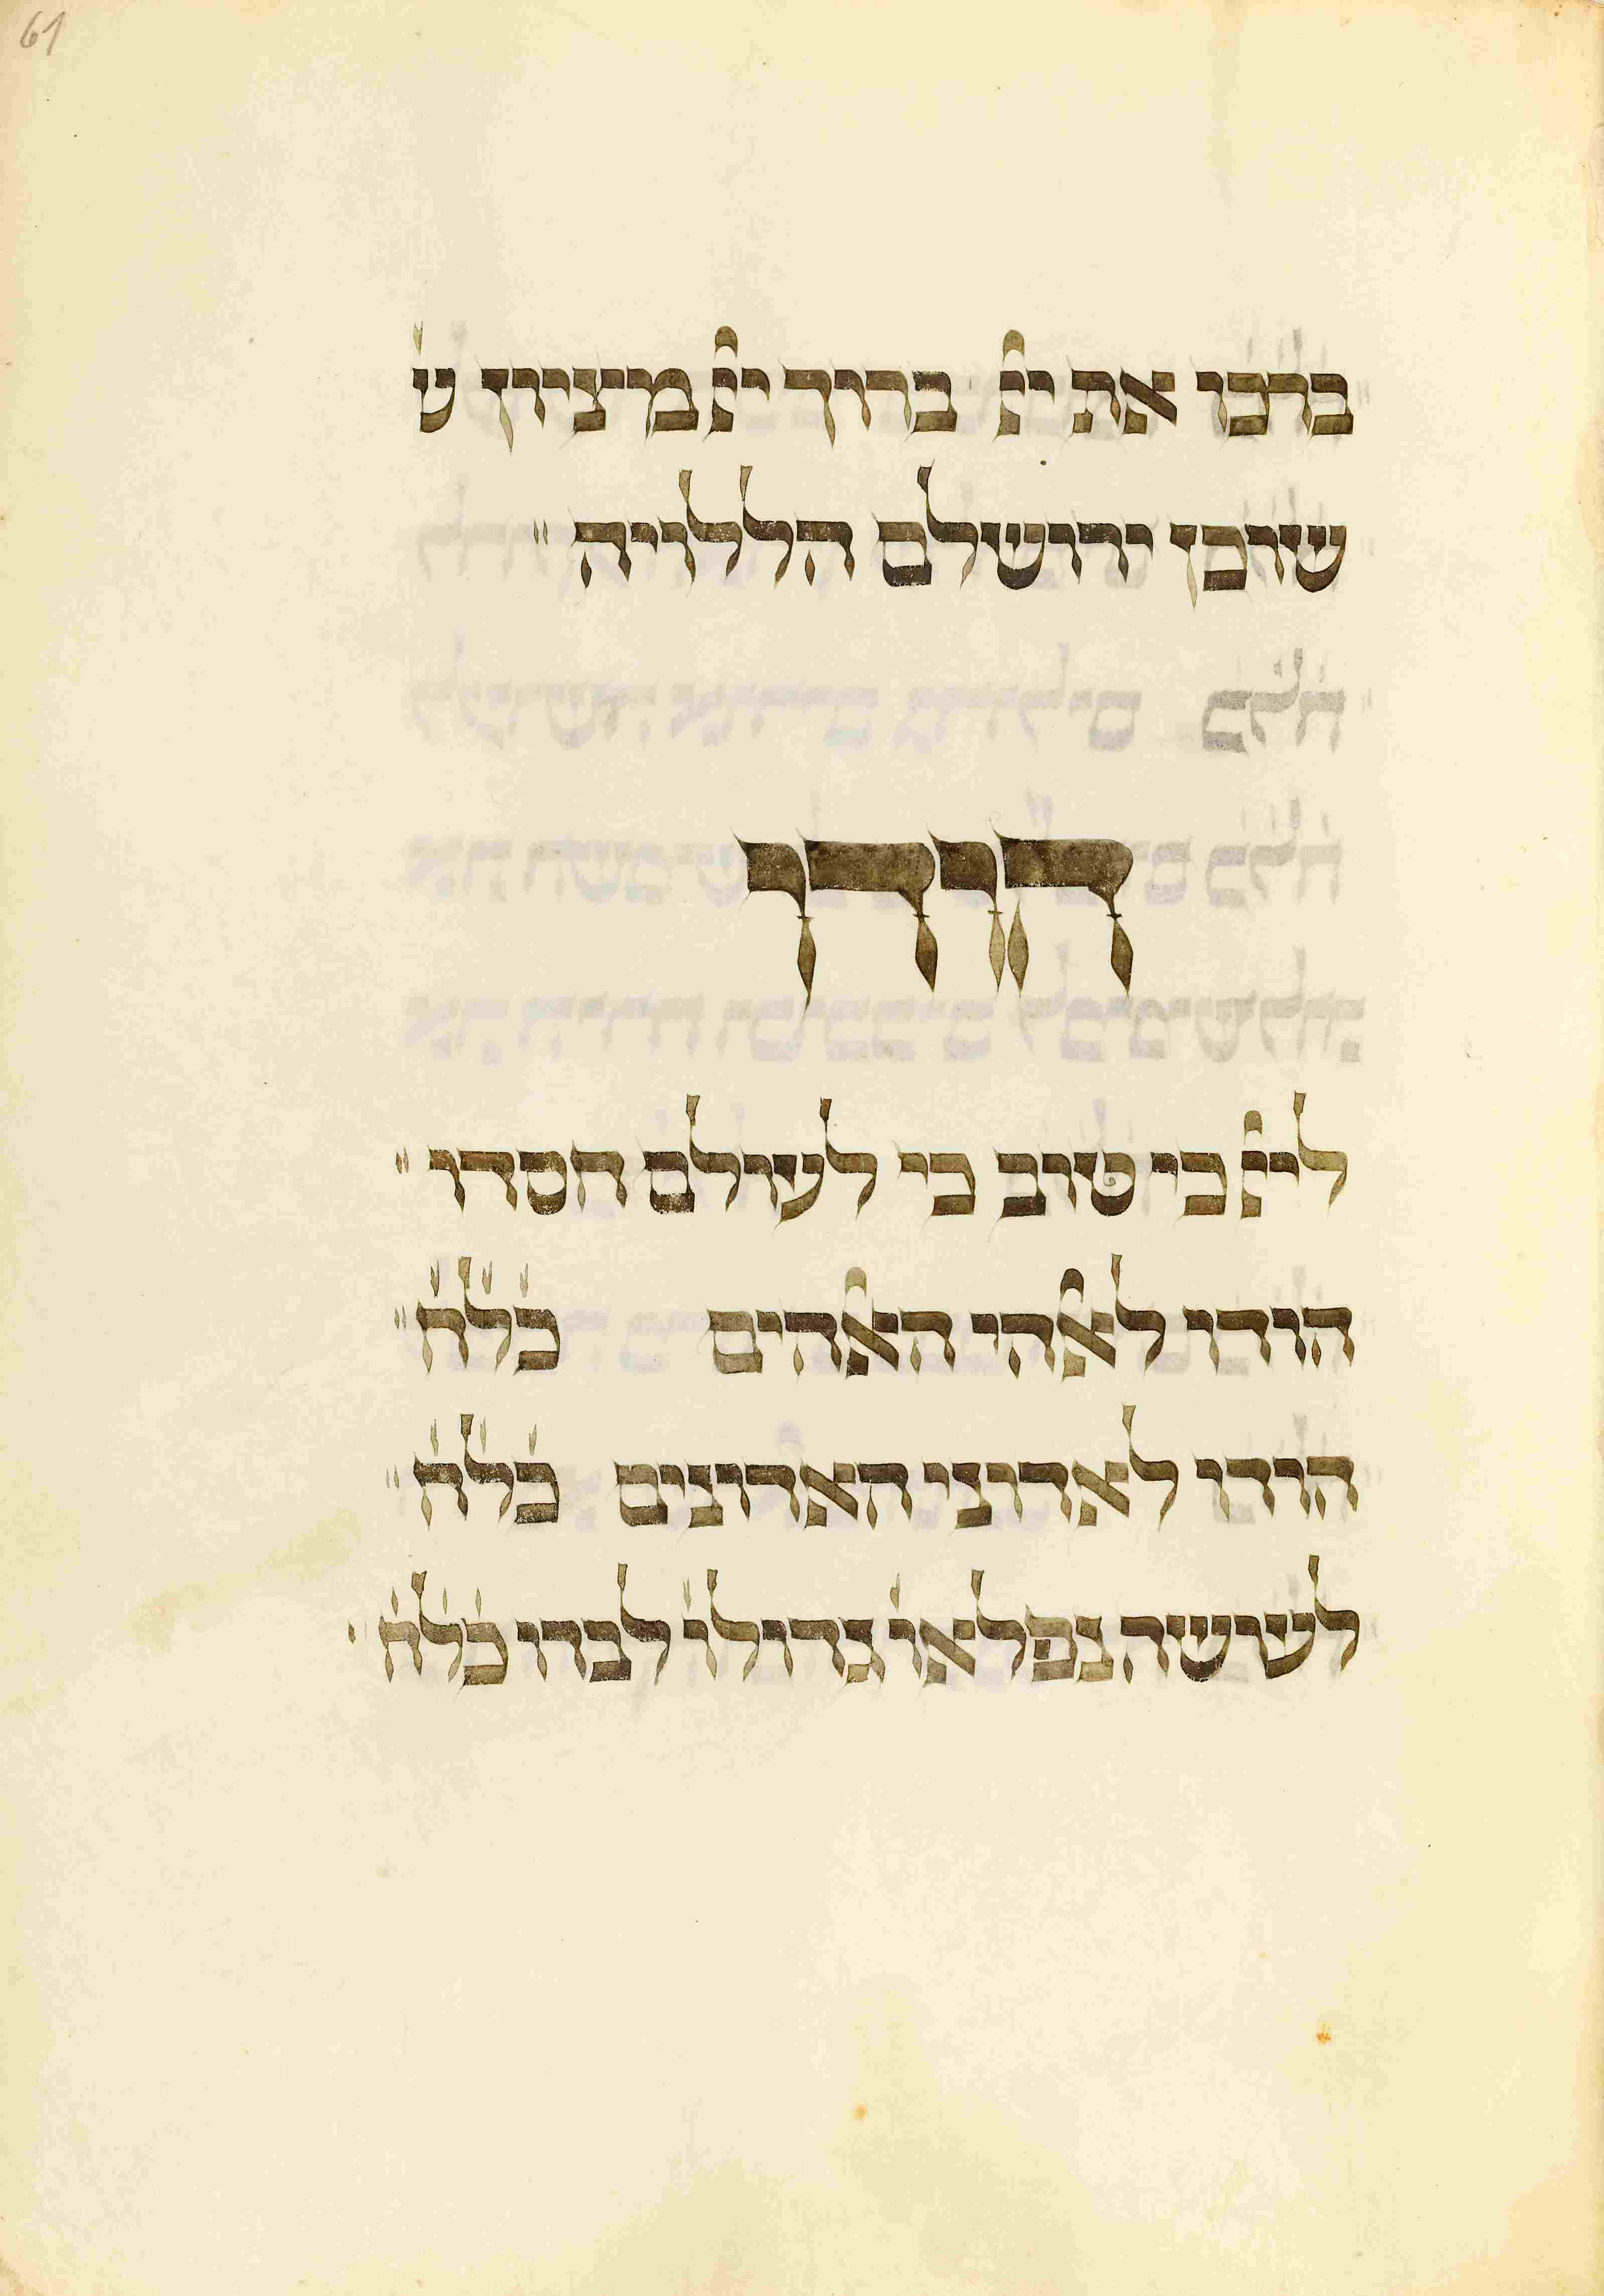 61
ברכו את יי ברוך יי מציון ש׳
שוכן ירושלם הללויה ״
הודו
ליי כי טוב כי לעולם חסדו ״
הודו לﭏהי הﭏהים כ׳ל׳ח׳ ״
הודו לאדוני האדונים כ׳ל׳ח׳ ״
לעושה נפלאו׳ גדולו׳ לבדו כ׳ל׳ח׳ ׳